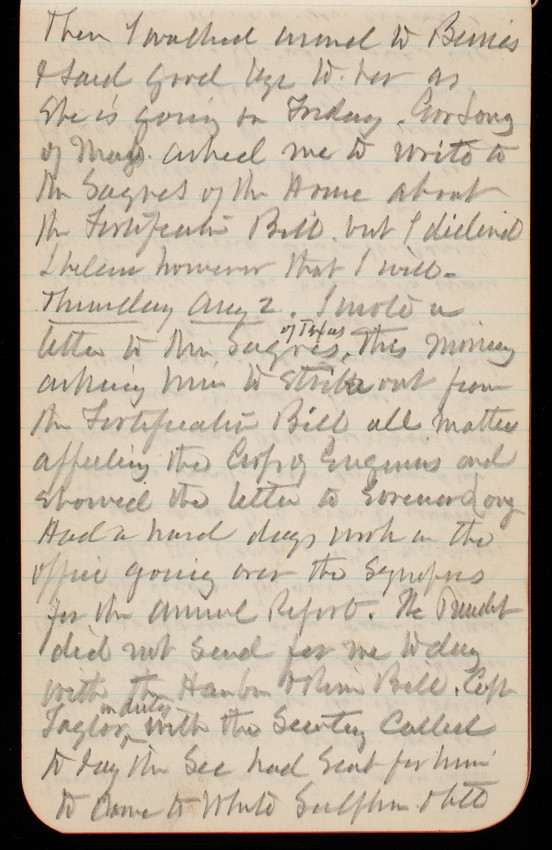 Then I walked around to Bessies
& said good bye to her as
She is going on Friday. Gov Long
of Mass. asked me to write to
Mr Sayres of the House about
the Fortification Bill. but I declined
I believe however that I will.
Thursday Aug 2. I wrote a
letter to Mr. Sayres, of Texas, this morning
asking him to strike out from
the Fortification Bill all matter
affecting the Corps of Engineers and
showed the letter to Governor Long
Had a hard days work in the
office going over the synopsis
for the Annual Report. The President
did not send for me to day
with the Harbor & River Bill. Capt
Taylor, on duty with the Secretary Called
to day the Sec had sent for him
to come to White Sulphur